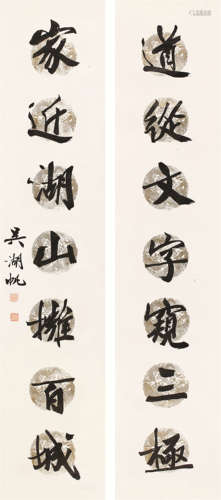 道從文字窺三極
家近湖山擁百城
吳湖帆